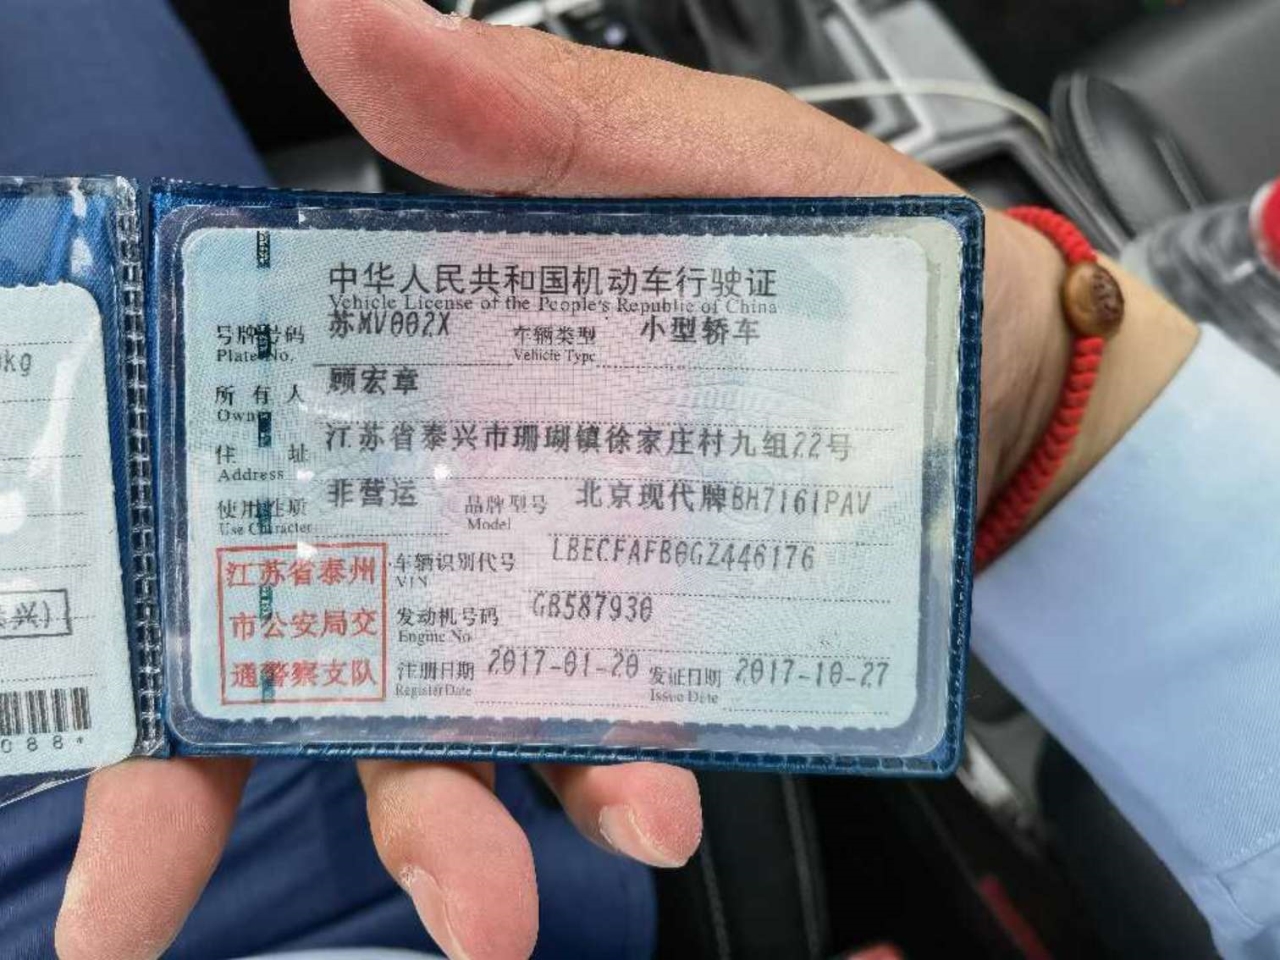 中华人民共和国机动车行驶证
Vehicle License of the People's Republic of China
号牌号码 苏MV002X 车辆类型 小型轿车
Plate No. Vehicle Type
所有人 顾宏章
Owner
住址 江苏省泰兴市珊瑚镇徐家庄村九组22号
Address
使用性质 非营运 品牌型号 北京现代牌BH7161PAV
Use Character Model
江苏省泰州
市公安局交
通警察支队
车辆识别代号 LBECFAFB0GZ446176
VIN
发动机号码 GB587930
Engine No.
注册日期 2017-01-20 发证日期 2017-10-27
Register Date Issue Date
kg
兴)
088*